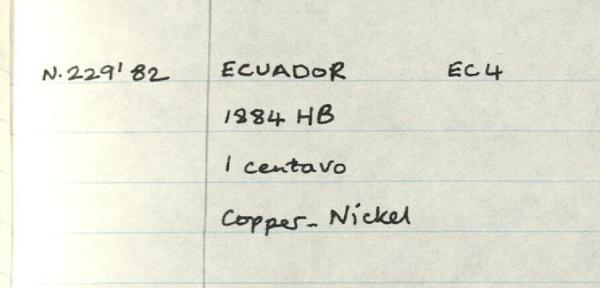 N.229'82 ECUADOR EC4
1884 HB
1 centavo
Copper-Nickel